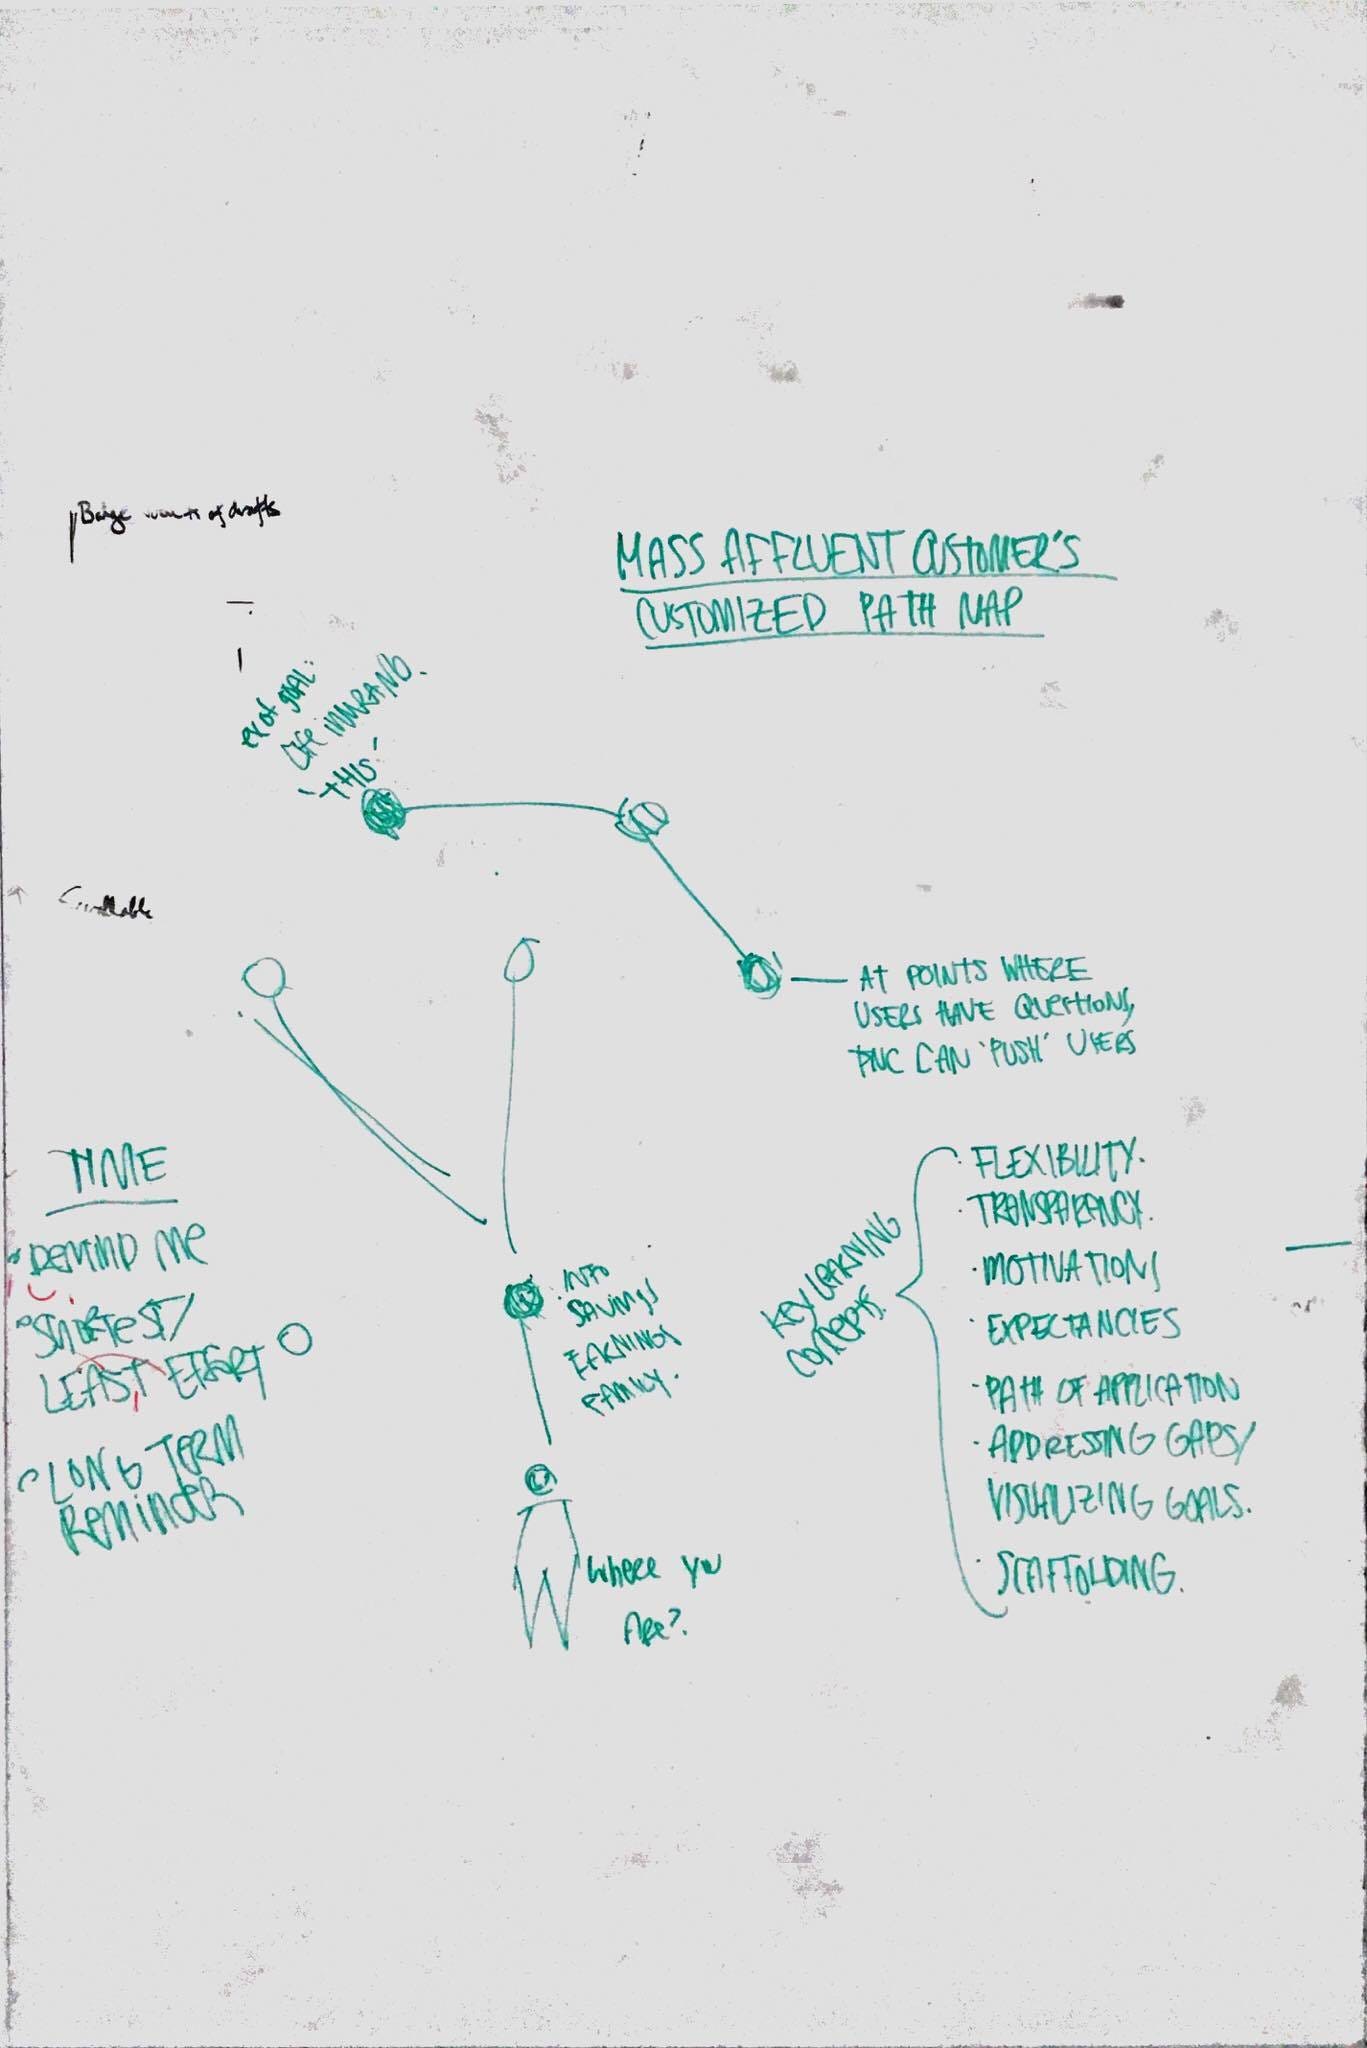 of drafts
MASS AFFLUENT CUSTOMER'S
CUSTOMIZED PATH MAP
ex of goal:
life
"THIS"
AT POINTS WHERE
USERS HAVE QUESTIONS,
PNC CAN 'PUSH' USERS
TIME
REMIND ME
SHORTEST/
LEAST EFFORT
LONG TERM
REMINDER
INFO
SAVINGS
EARNINGS
FAMILY.
WHERE YOU
ARE?
KEY LEARNING
CONCEPTS.
· FLEXIBILITY.
· TRANSPARENCY.
· MOTIVATIONS
· EXPECTANCIES
· PATH OF APPLICATION
· ADDRESSING GAPS/
VISUALIZING GOALS.
· SCAFFOLDING.